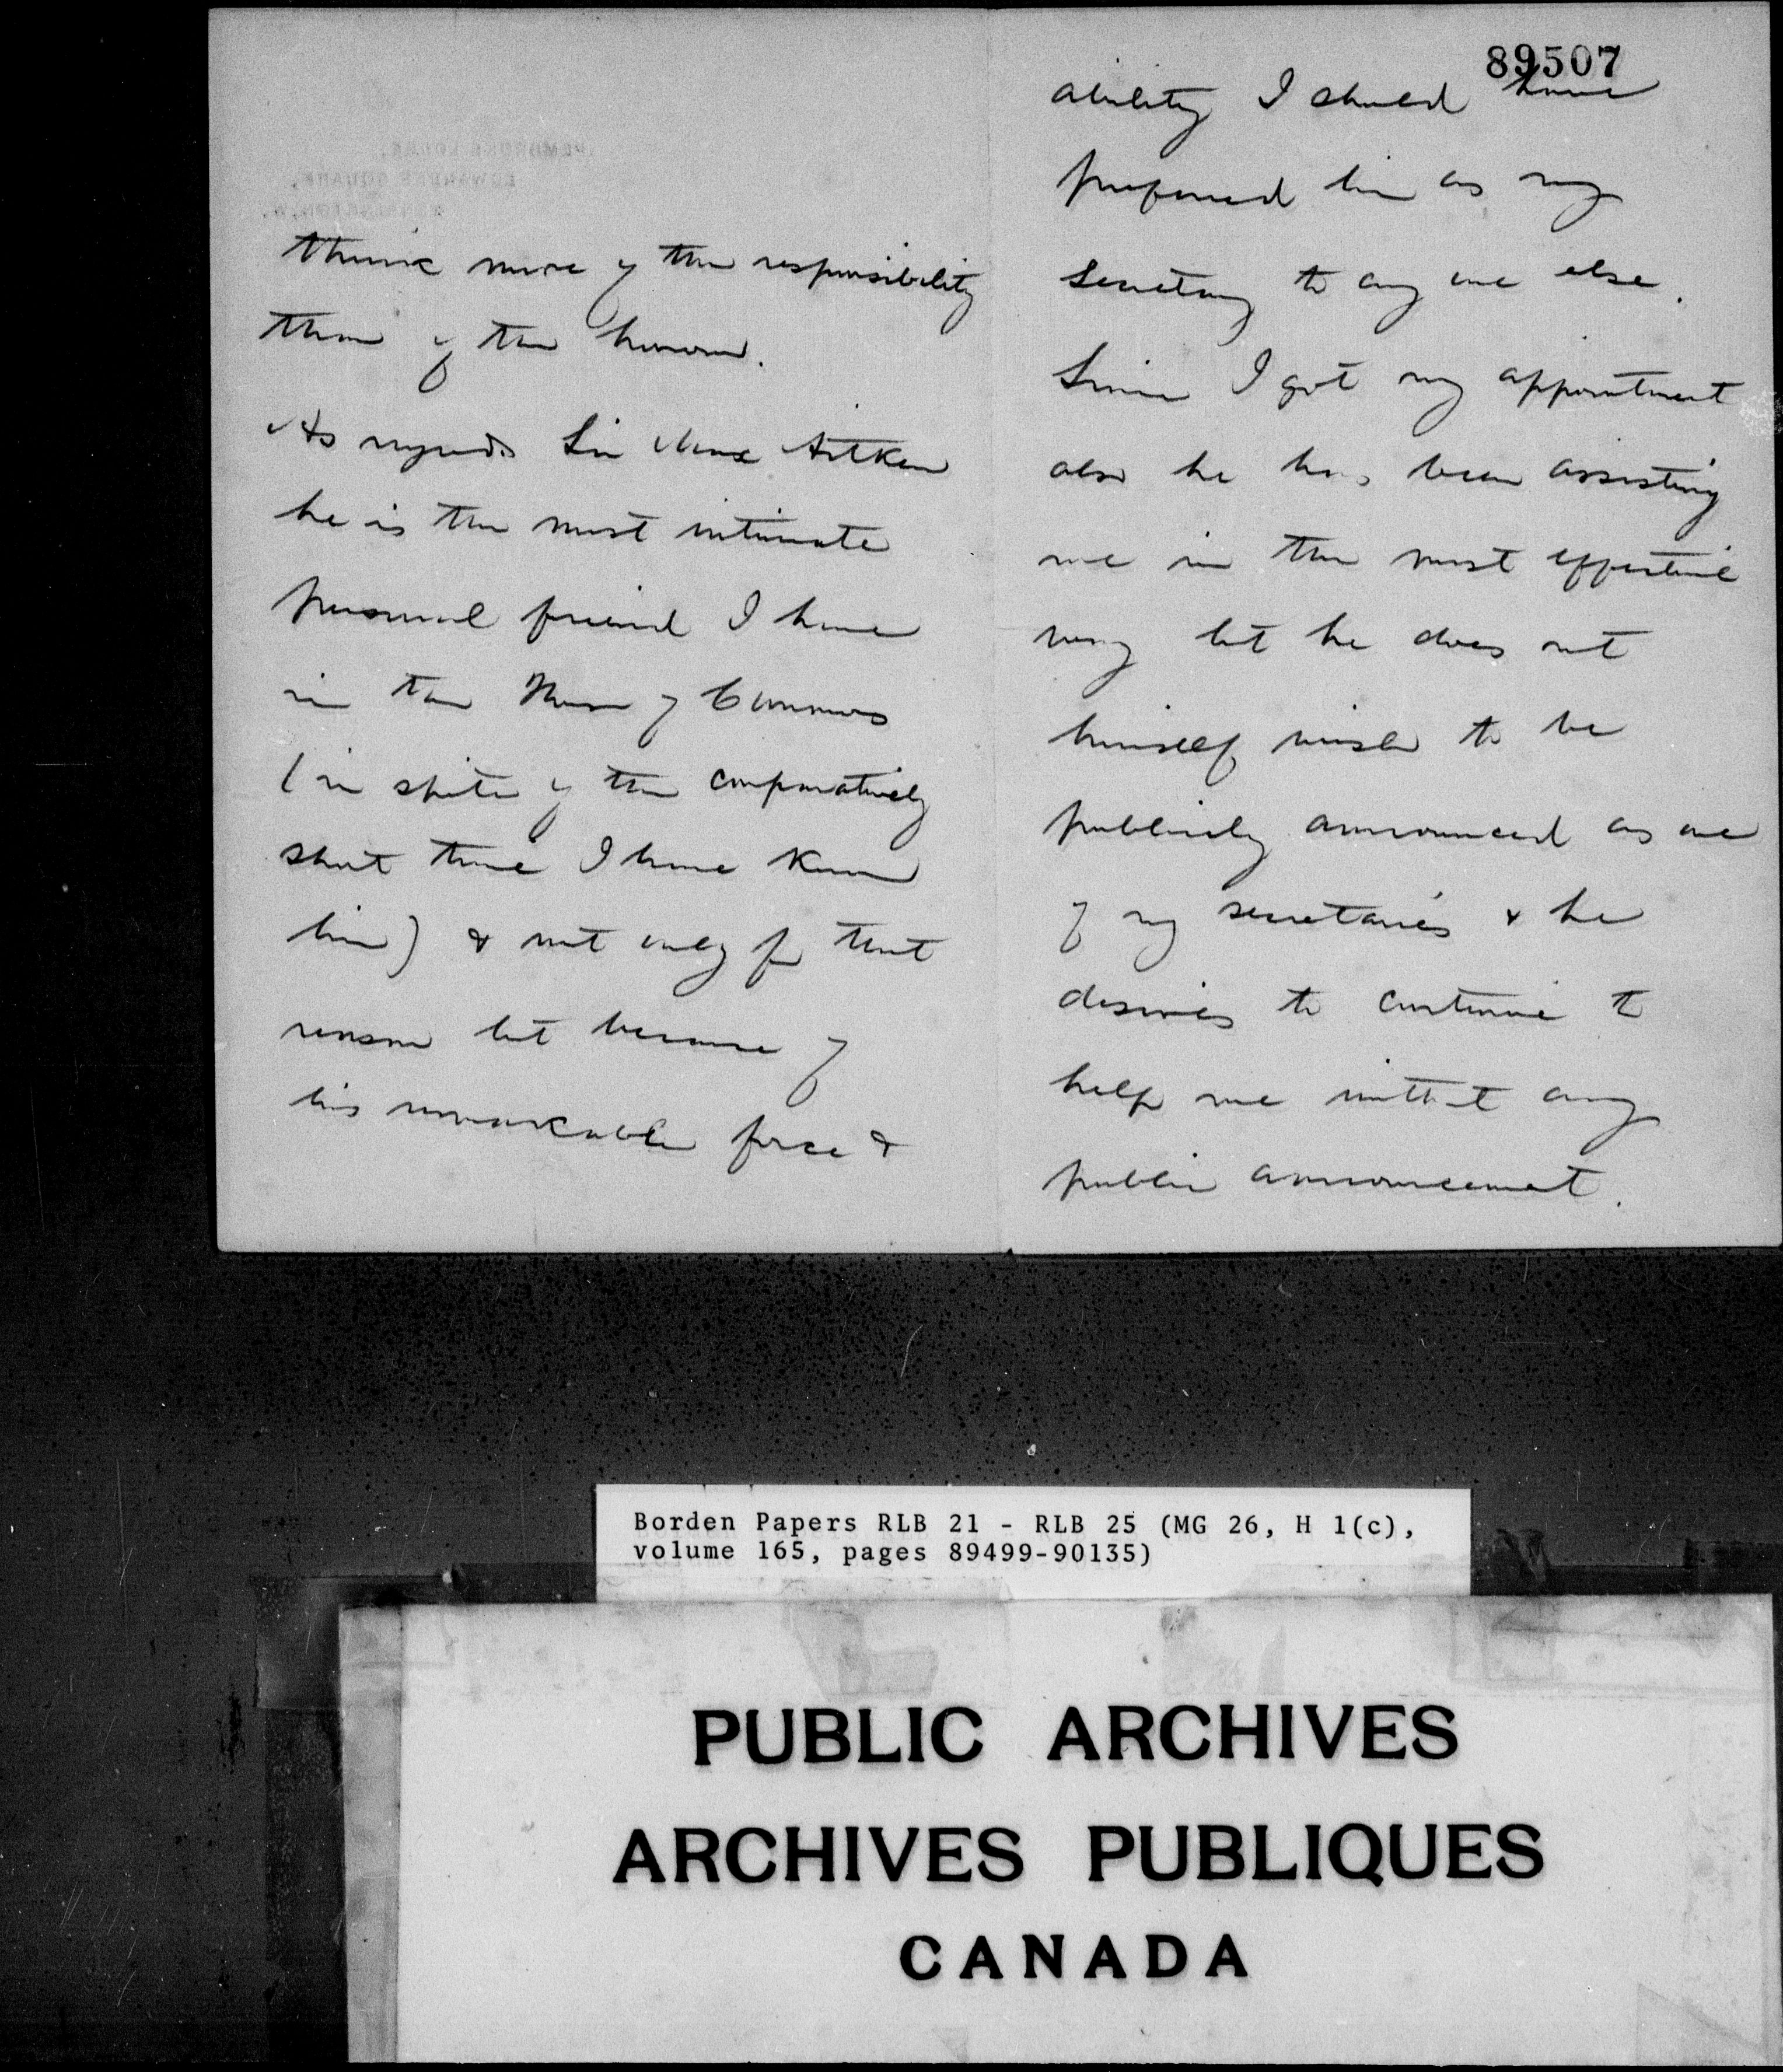 think more of the responsibility
than of the honour.
As regards Sir Max Aitken
he is the most intimate
personal friend I have
in the House of Commons
(in spite of the comparatively
short time I have known
him) & not only for that
reason but because of
his remarkable force &
89507
ability I should have
preferred him as my
secretary to any one else.
Since I got my appointment
also he has been assisting
me in the most effective
way but he does not
himself wish to be
publicly announced as one
of my secretaries & he
desires to continue to
help me without any
public announcement.
PEMBROKE LODGE,
EDWARDES SQUARE,
KENSINGTON, W.
Borden Papers RLB 21 - RLB 25 (MG 26, H 1(c),
volume 165, pages 89499-90135)
PUBLIC ARCHIVES
ARCHIVES PUBLIQUES
CANADA